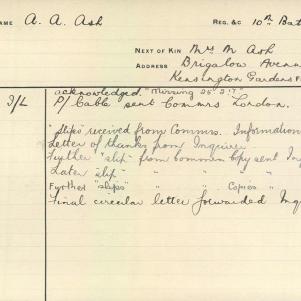 NAME A. A. Ash REG. &C 10th Bat
NEXT OF KIN Mrs M Ash
ADDRESS Brigalow Avenu
Kensington Gardens
acknowledged. "Missing
I/L P/ Cable sent Commrs London.
"Slips" received from Commrs. Information
Letter of thanks from Inquirer.
Further "slip" from Commrs copy sent Inq
Later slip " " " "
Further "slips" " " Copies "
Final circular letter forwarded Inq